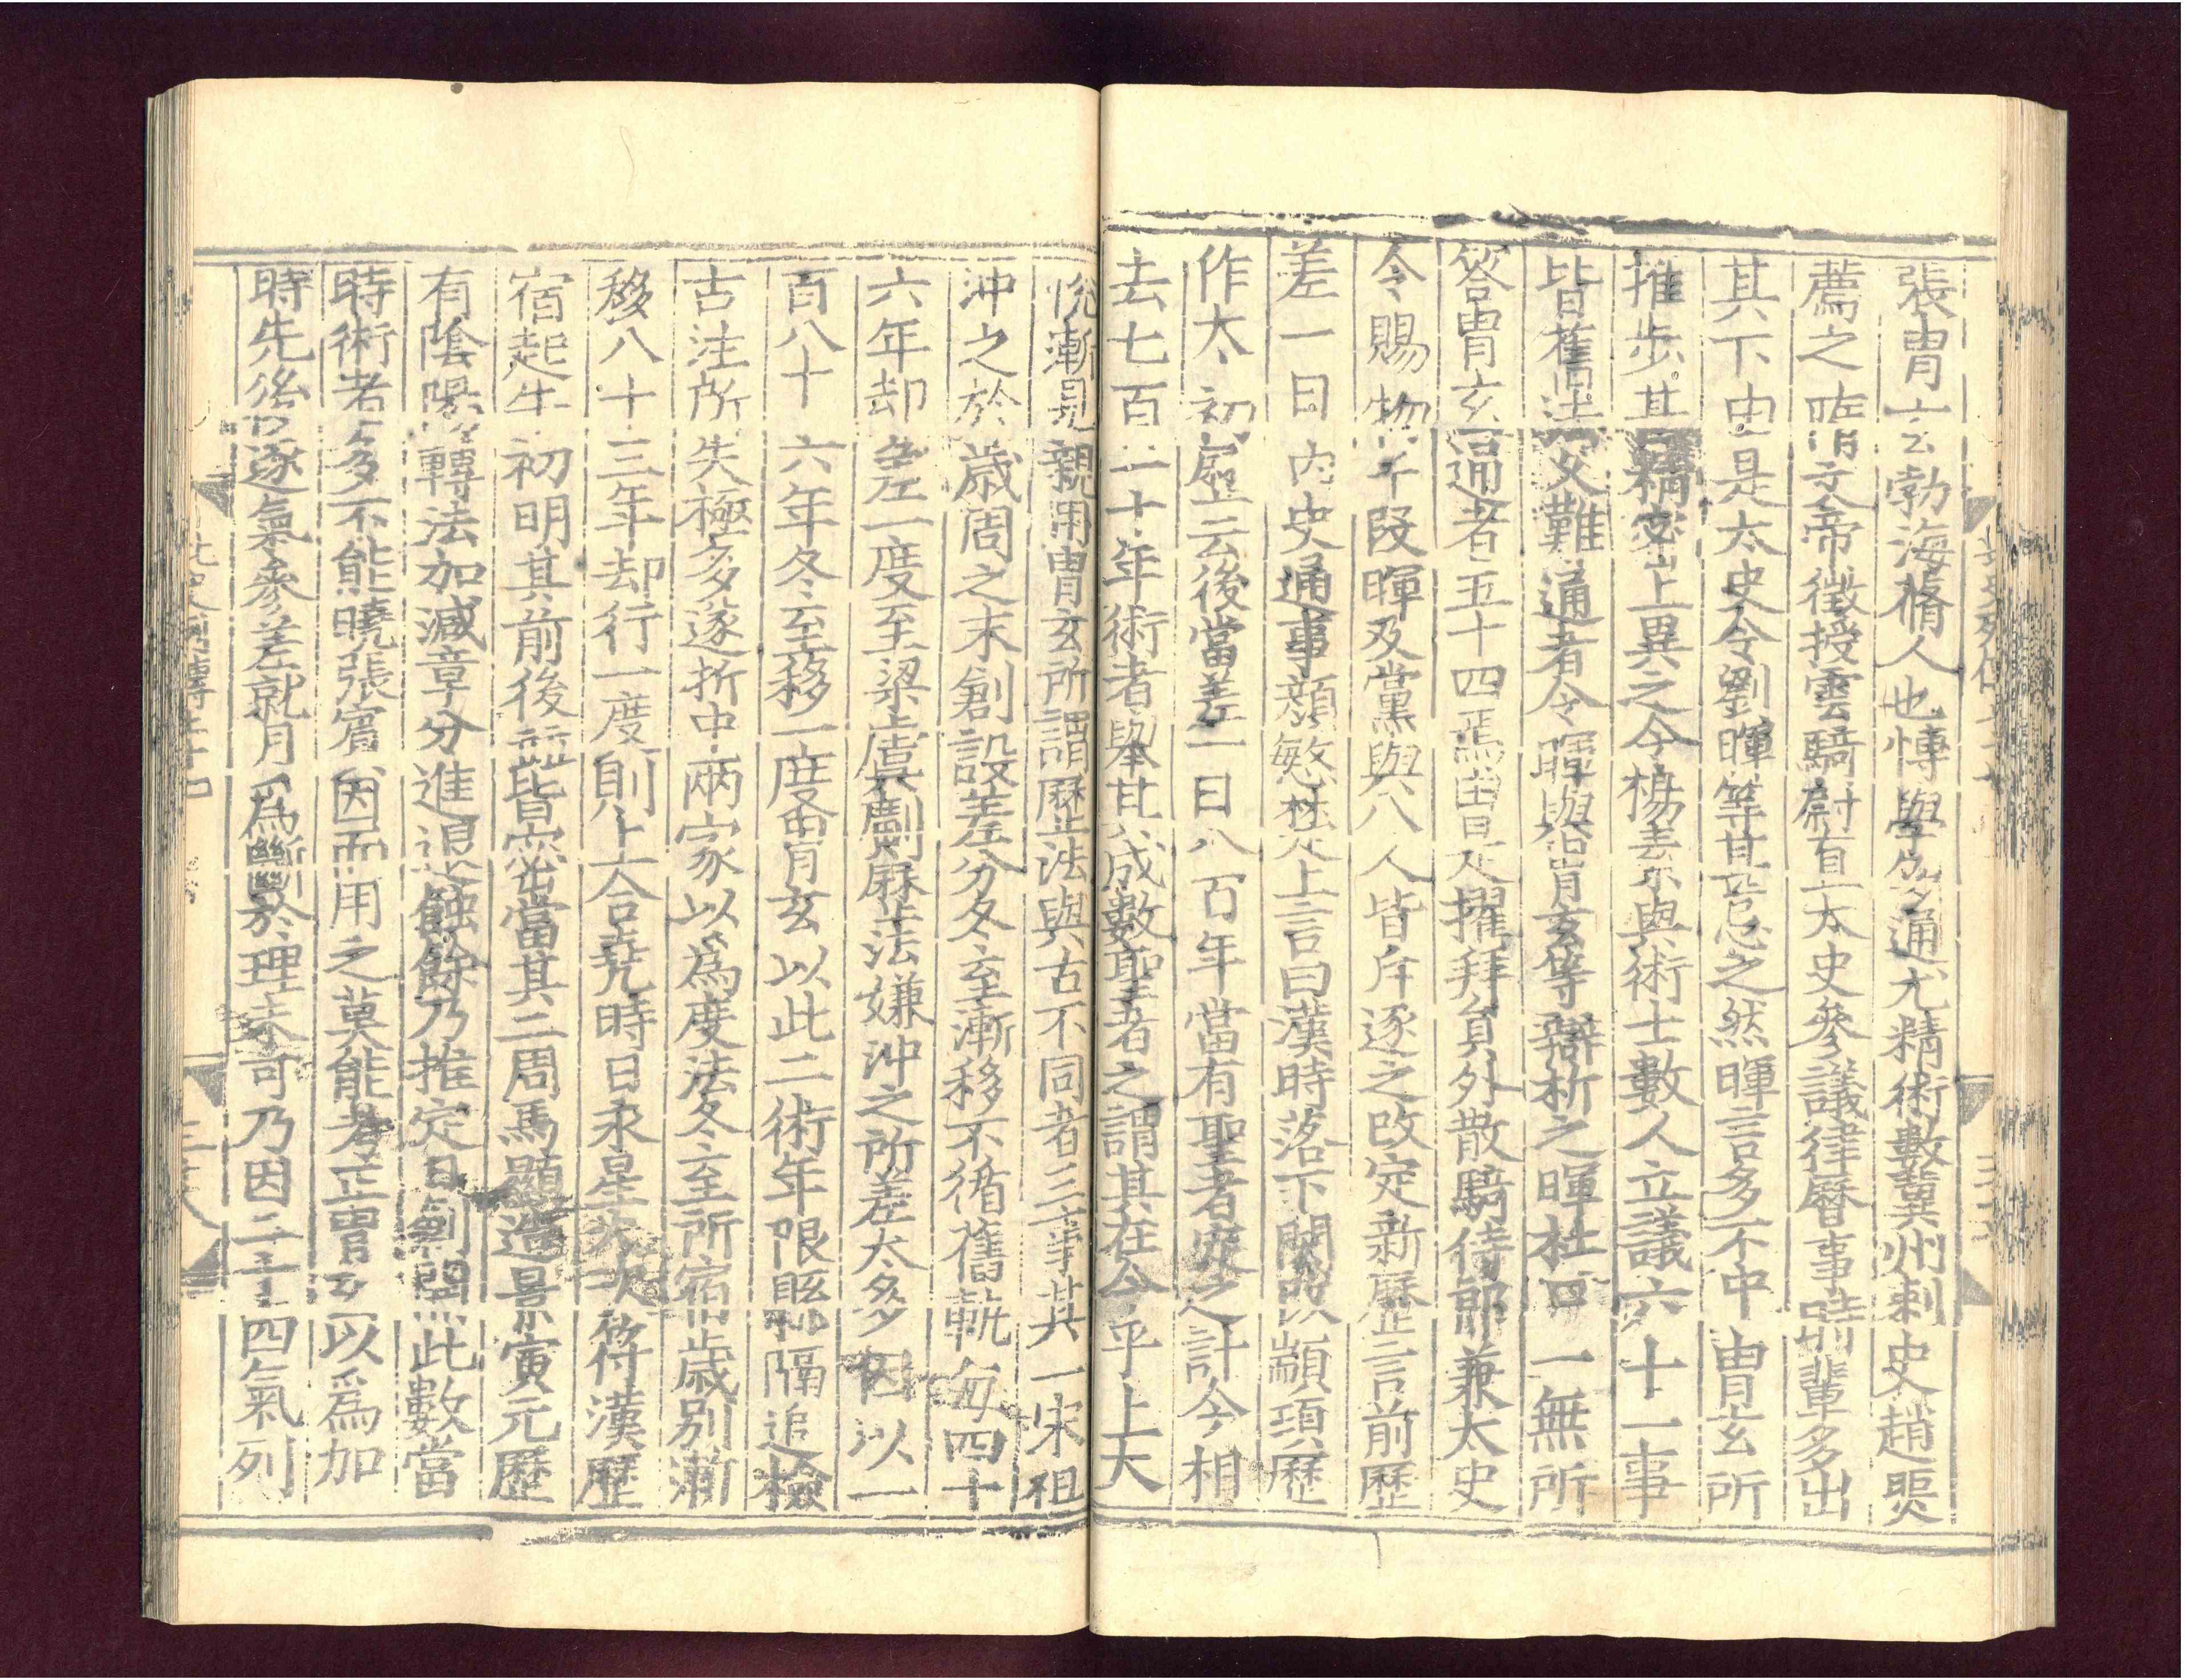 張胄玄勃海蓨人也博學多通尤精術數冀州刺史趙煚
薦之隋文帝徵授雲騎尉直太史參議律曆事時輩多出
其下由是太史令劉暉等甚忌之然暉言多不中胄玄所
推步甚精密上異之令楊素與術士數人立議六十一事
皆舊法久難通者令暉與胄玄等辯析之暉杜口一無所
答胄玄通者五十四焉由是擢拜員外散騎侍郎兼太史
令賜物千段暉及黨與八人皆斥逐之改定新歷言前歷
差一日內史通事顏慜楚上言曰漢時落下閎改顓頊歷
作太初歷云後當差一日八百年當有聖者定之計今相
去七百一十年術者舉其成數聖者之謂其在今乎上大
悅漸見親用胄玄所謂歷法與古不同者三事其一宋祖
沖之於歲周之末創設差分冬至漸移不循舊軌每四十
六年却差一度至梁虞𠠎歷法嫌沖之所差太多因以一
百八十六年冬至移一度胄玄以此二術年限懸隔追檢
古注所失極多遂折中兩家以為度法冬至所宿歲別漸
移八十三年却行一度則上合堯時日永星火次符漢歷
宿起牛初明其前後並皆密當其二周馬顯造景寅元歷
有陰陽轉法加減章分進退蝕餘乃推定日創開此數當
時術者多不能曉張賓因而用之莫能考正胄玄以爲加
時先後逐氣參差就月爲斷於理未可乃因二十四氣列